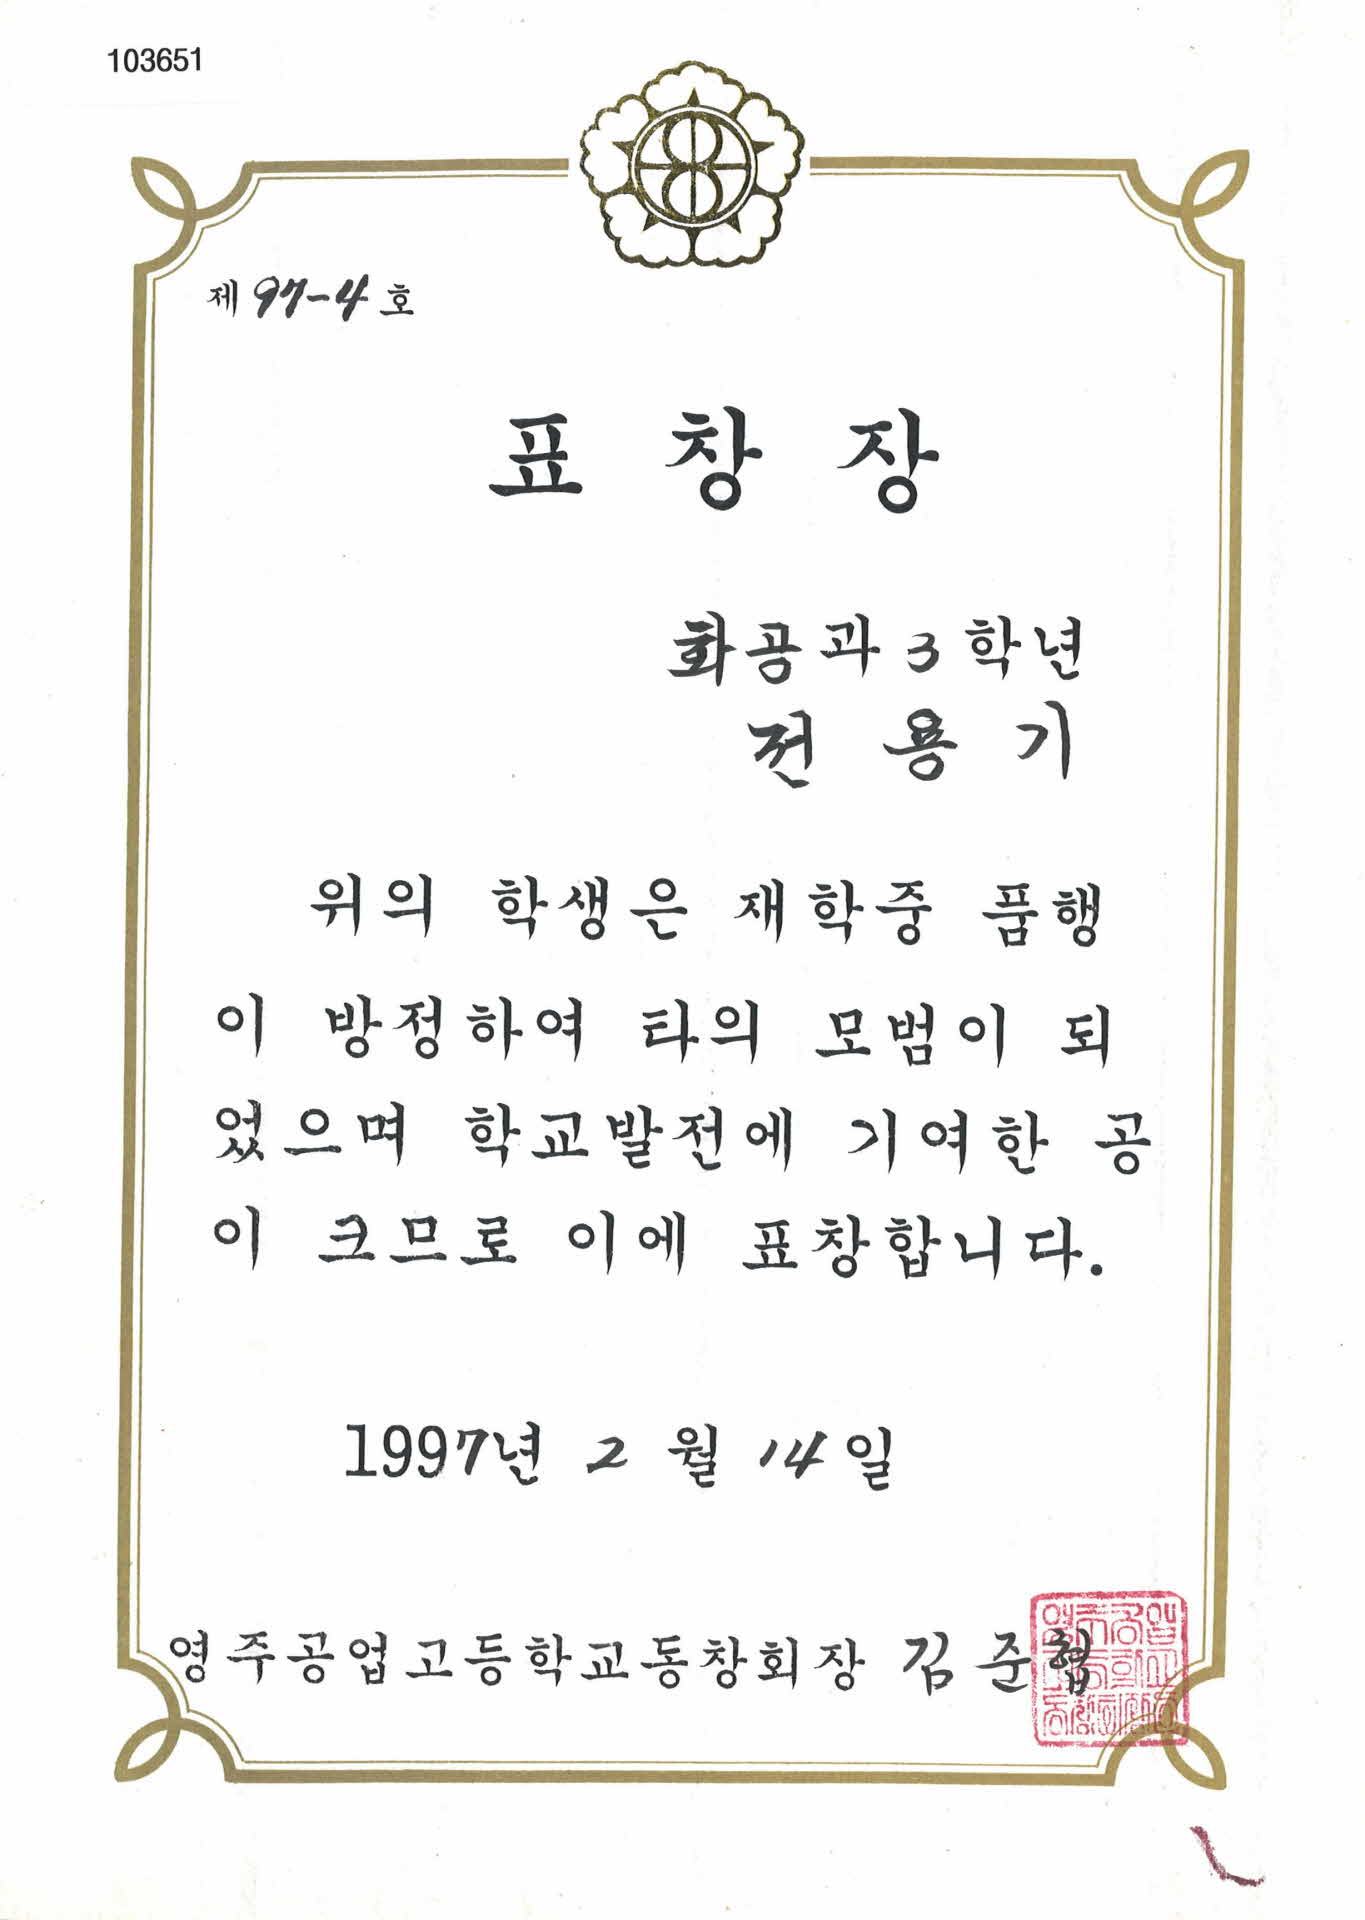 103651
제 97-4 호
표 창 장
화공과 3 학년
전 용 기
위의 학생은 재학중 품행
이 방정하여 타의 모범이 되
었으며 학교발전에 기여한 공
이 크므로 이에 표창합니다.
1997년 2 월 14 일
영주공업고등학교동창회장 김 준 협